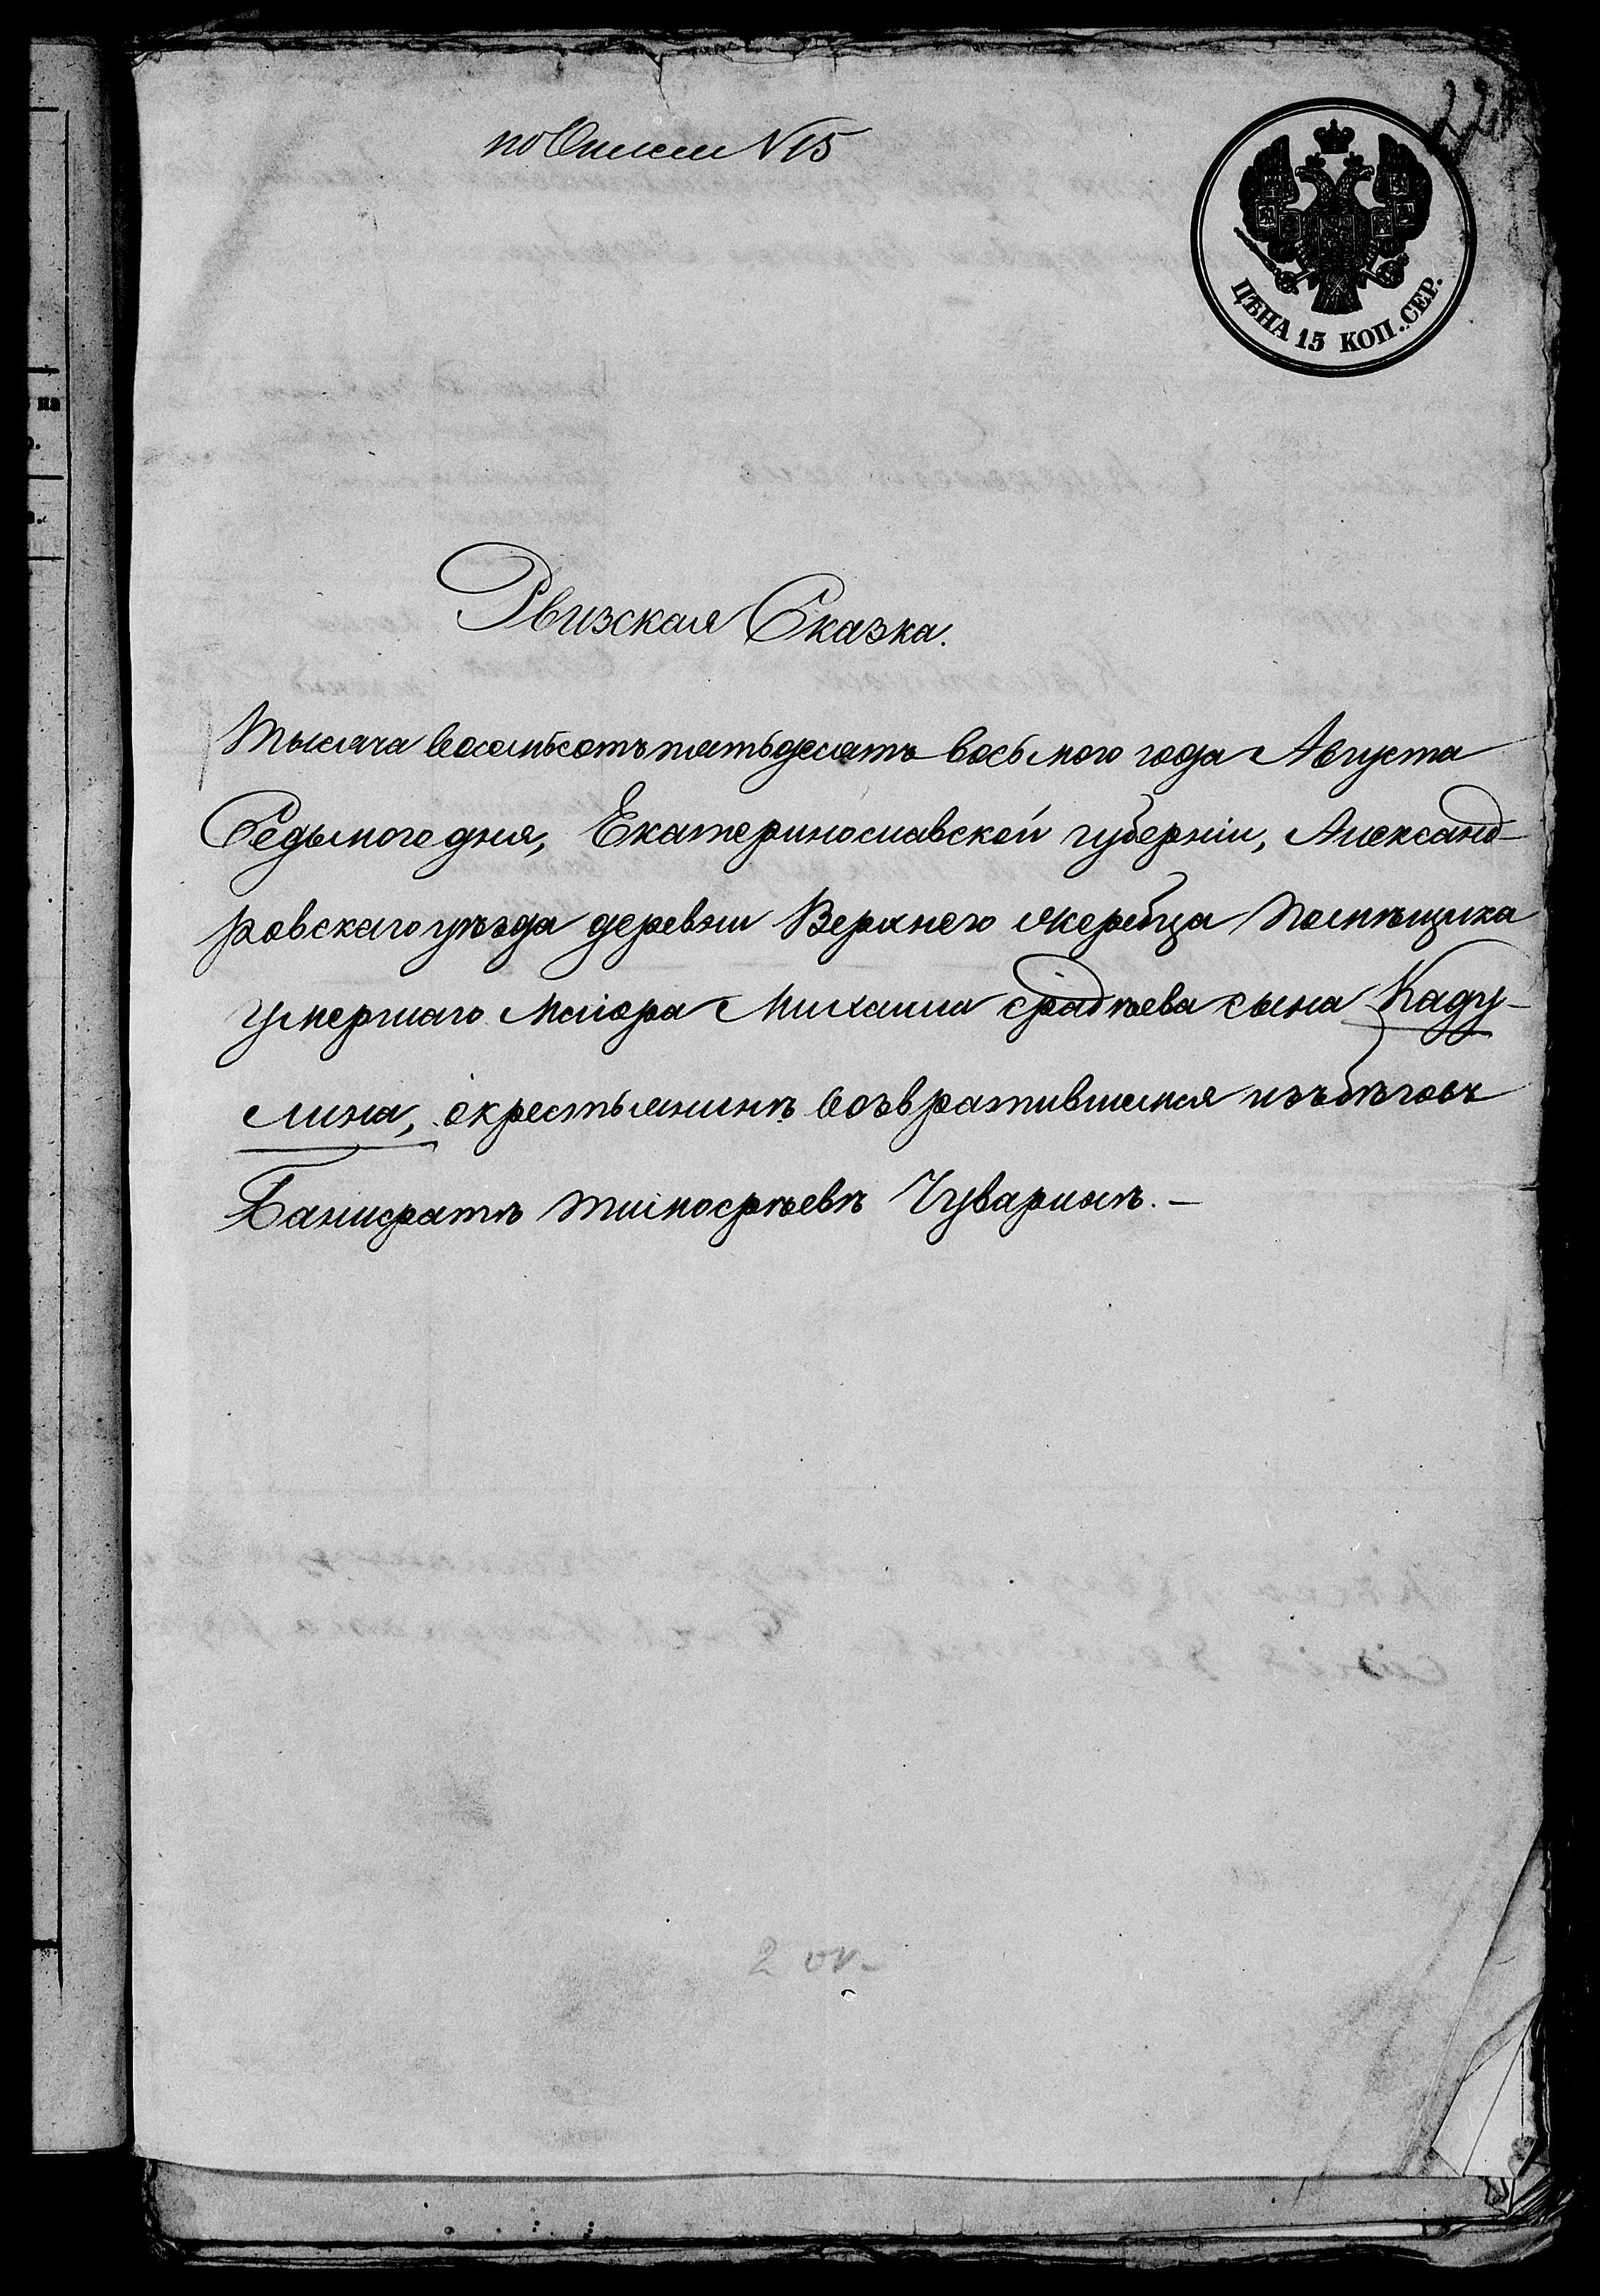 по Описи N 15
22
ЦѢНА 15 КОП. СЕР.
Рвизская Сказка.
Тысяча восемьсотъ пятьдесятъ восьмого года Августа
Седьмого дня, Екатеринославской губерніи, Александ-
ровскаго уѣзда деревни Верхнего Жеребца Помѣщика
умершаго Маіора Михаила Фадѣева сына Каду-
лина, окрестьянинѣ возвратившемся изъ бѣговъ
Панфратѣ Тимофѣевѣ Чуваринѣ. –
2